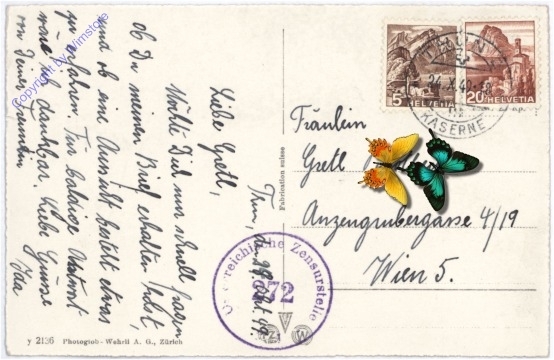 Thun, am 29. Okt. 49.
Liebe Gretl,
Möchte Dich nur schnell fragen
ob Du meinen Brief erhalten hast,
und ob eine Aussicht besteht etwas
zu erfahren. Für baldige Antwort
wäre ich dankbar. Liebe Grüsse
von Deiner Freundin
Ida
Fräulein
Gretl
Anzengrubergasse 4/19
Wien 5.
THUN
KASERNE
5 HELVETIA
20 HELVETIA
Österreichische Zensurstelle
272
Z
W
Fabrication suisse
y 2136 Photoglob-Wehrli A. G., Zürich
Copyright by Wimstore